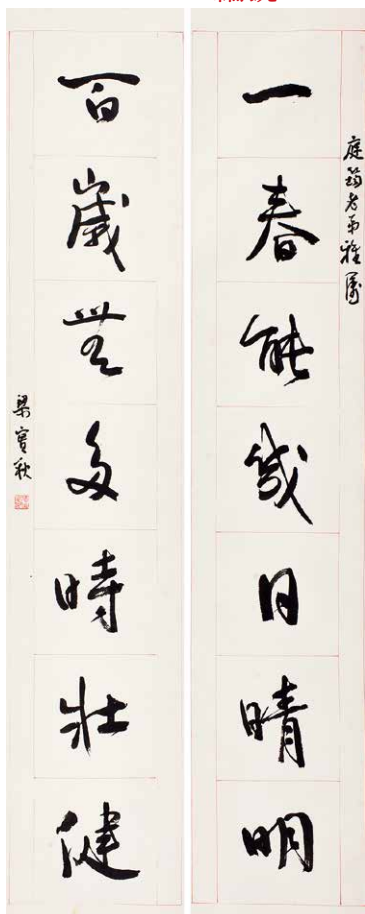 庭筠老弟雅屬
一春能幾日晴明
百歲無多時壯健
梁實秋